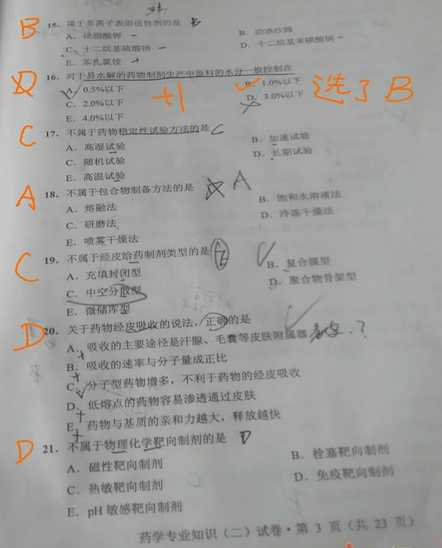 15. 属于非离子表面活性剂的是 B
A. 硫脂酸钾
B. 泊洛沙姆
C. 十二烷基硫酸钠
D. 十二烷基苯磺酸钠
E. 苯扎氯铵
16. 对于易水解的药物制剂生产中原料的水分一般控制在
A. 0.5%以下
B. 1.0%以下
C. 2.0%以下
D. 3.0%以下
E. 4.0%以下
+1
选了B
C 17. 不属于药物稳定性试验方法的是 C
A. 高湿试验
B. 加速试验
C. 随机试验
D. 长期试验
E. 高温试验
A 18. 不属于包合物制备方法的是 A
A. 熔融法
B. 饱和水溶液法
C. 研磨法
D. 冷冻干燥法
E. 喷雾干燥法
C 19. 不属于经皮给药制剂类型的是
A. 充填封闭型
B. 复合膜型
C. 中空分散型
D. 聚合物骨架型
E. 微储库型
D 20. 关于药物经皮吸收的说法，正确的是
A. 吸收的主要途径是汗腺、毛囊等皮肤附属器
B. 吸收的速率与分子量成正比
C. 分子型药物增多，不利于药物的经皮吸收
D. 低熔点的药物容易渗透通过皮肤
E. 药物与基质的亲和力越大，释放越快
D 21. 不属于物理化学靶向制剂的是 D
A. 磁性靶向制剂
B. 栓塞靶向制剂
C. 热敏靶向制剂
D. 免疫靶向制剂
E. pH 敏感靶向制剂
药学专业知识（二）试卷·第 3 页（共 23 页）